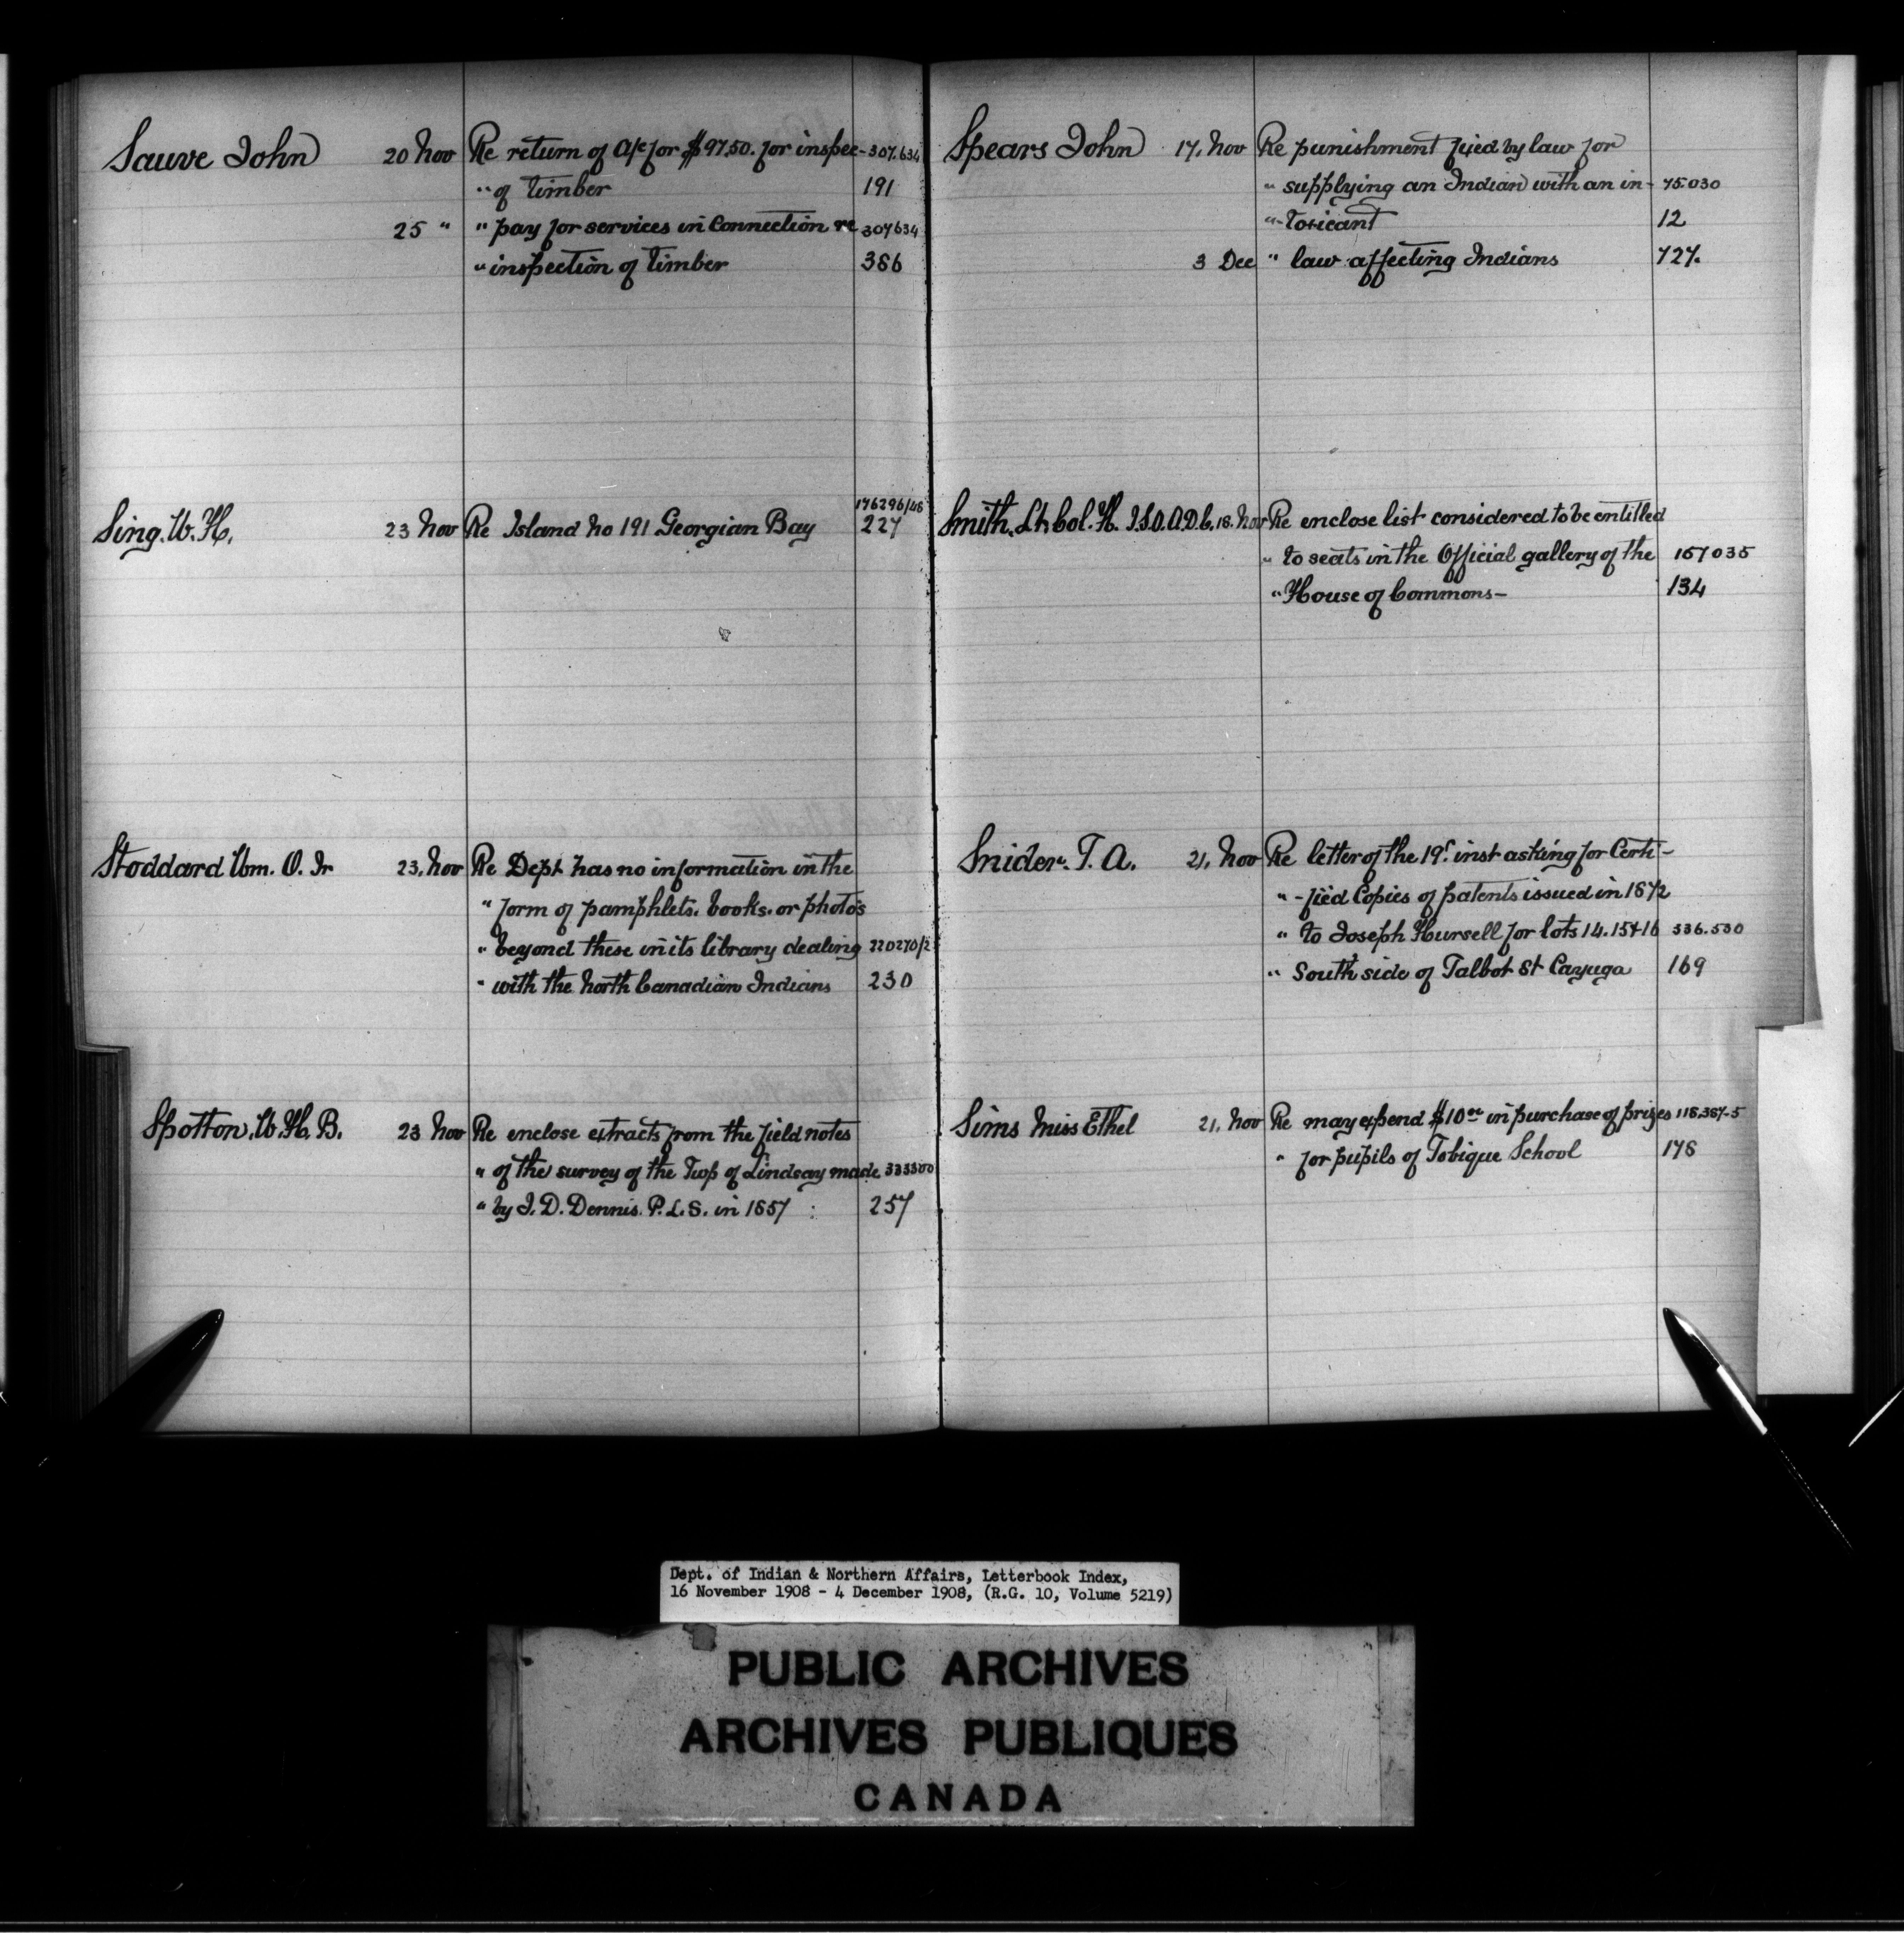 Sauve John 20 Nov Re return of A/c for $97.50. for inspec- 307.634
" of timber 191
25 " " pay for services in connection re 307634
" inspection of timber 386
Sing. W. H. 23 Nov Re Island No 191 Georgian Bay 176296/46
227
Stoddard Wm. O. Jr 23, Nov Re Dept has no information in the
" form of pamphlets. books. or photos
" beyond these in its library dealing 220270/2
" with the North Canadian Indians 230
Spotton, W. H. B. 23 Nov Re enclose extracts from the field notes
" of the survey of the Twp of Lindsay made 333300
" by J. D. Dennis. P. L. S. in 1857 : 257
Spears John 17, Nov Re punishment fixed by law for
" supplying an Indian with an in- 75.030
"-toxicant 12
3 Dec " law affecting Indians 727.
Smith. Lt. Col. H. I.S.O. A.D.C. 18. Nov Re enclose list considered to be entitled
" to seats in the Official gallery of the 157035
" House of Commons- 134
Snider. T. A. 21, Nov Re letter of the 19th inst asking for Certi-
" -fied Copies of patents issued in 1872
" to Joseph Hursell for lots 14. 15 + 16 336.530
" South side of Talbot St Cayuga 169
Sims Miss Ethel 21, Nov Re may expend $10 00 in purchase of prizes 118,387-5
" for pupils of Tobique School 178
Dept. of Indian & Northern Affairs, Letterbook Index,
16 November 1908 - 4 December 1908, (R.G. 10, Volume 5219)
PUBLIC ARCHIVES
ARCHIVES PUBLIQUES
CANADA